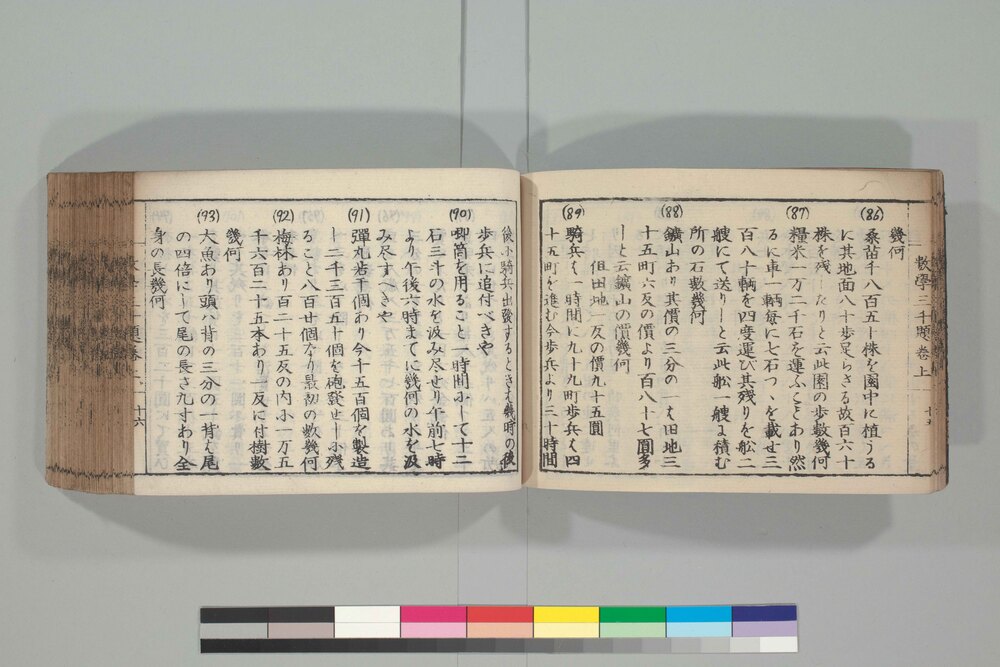 數學三千題卷上
幾何
(86)
桑苗千八百五十株を園中に植うる
に其地面八十歩足らさる故百六十
株を残したりと云此園の歩数幾何
(87)
糧米一万二千石を運ふことあり然
るに車一輌毎に七石つゝを載せ三
百八十輌を四度運び其残りを舩二
艘にて送りしと云此舩一艘に積む
所の石数幾何
(88)
鑛山あり其價の三分の一は田地三
十五町六反の價より百八十七圓多
しと云鑛山の價幾何
但田地一反の價九十五圓
(89)
騎兵は一時間に九十九町歩兵は四
十五町を進む今歩兵より三十時間
後に騎兵出發するときは幾時の後
歩兵に追付べきや
(90)
喞筒を用ること一時間にして十二
石三斗の水を汲み尽せり午前七時
より午後六時まてに幾何の水を汲
み尽すべきや
(91)
彈丸若干個あり今千五百個を製造
し二千三百五十個を砲發せしに残
ること八百廿個なり最初の数幾何
(92)
梅林あり百二十五反の内に一万五
千六百二十五本あり一反に付樹数
幾何
(93)
大魚あり頭は背の三分の一背は尾
の四倍にして尾の長さ九寸あり全
身の長幾何
十六